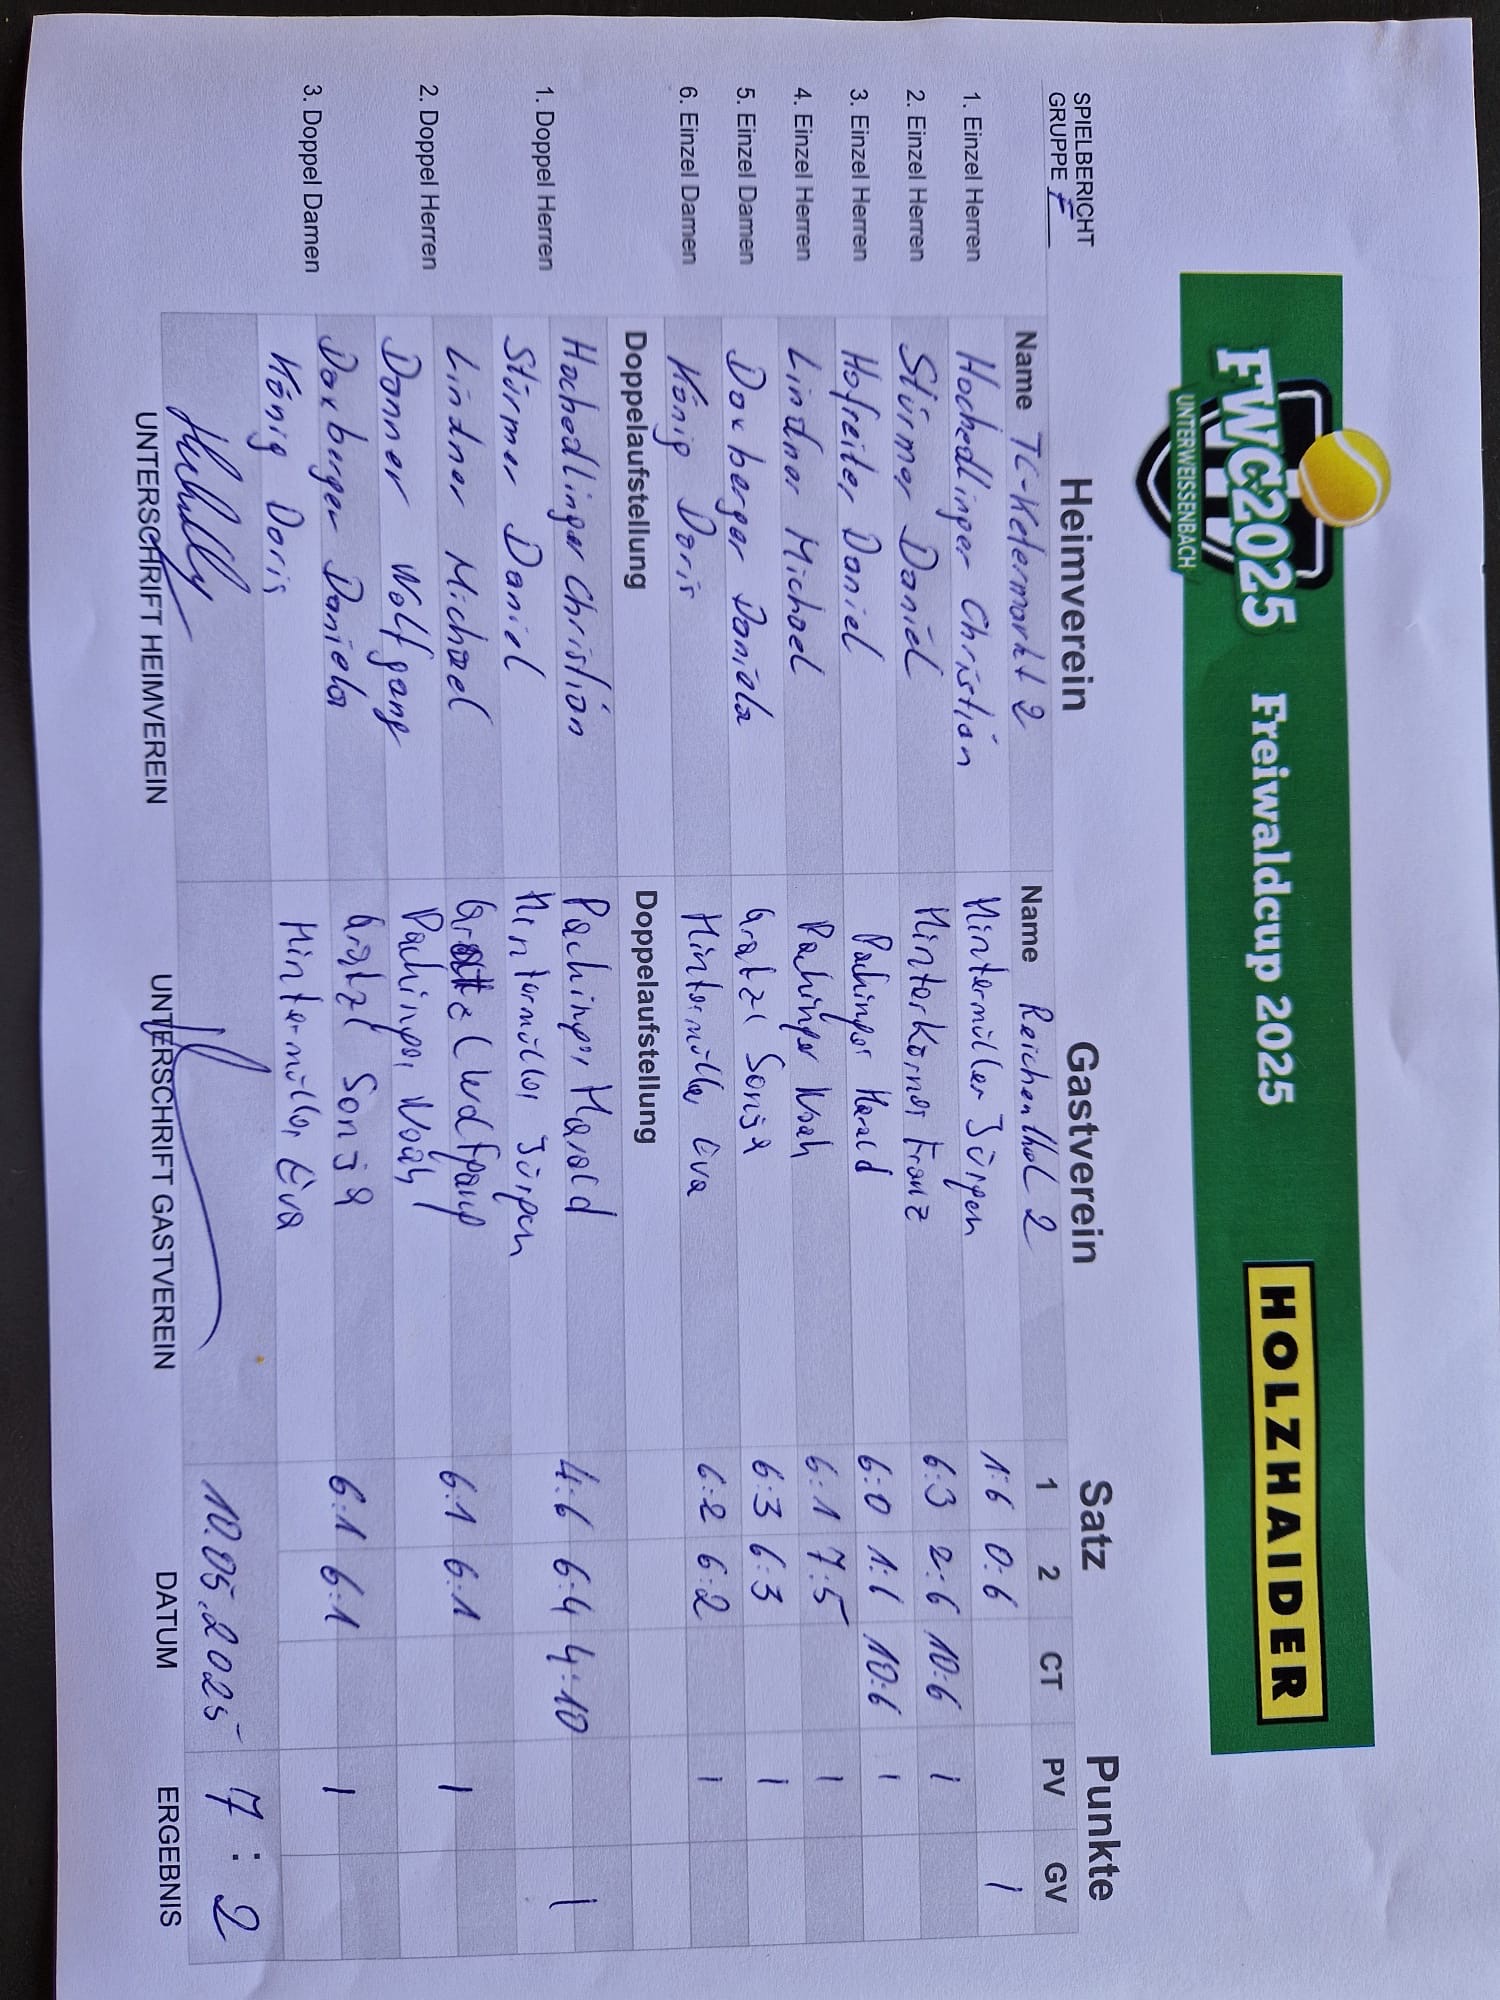 FWC2025
UNTERWEISSENBACH
Freiwaldcup 2025
HOLZHAIDER
SPIELBERICHT
GRUPPE F
Heimverein Gastverein Satz Punkte
Name TC-Kefermarkt 2 Name Reichenthal 2 1 2 CT PV GV
1. Einzel Herren Hochedlinger Christian Hintermüller Jürgen 1:6 0:6 1
2. Einzel Herren Stürmer Daniel Hinterkörner Franz 6:3 2:6 10:6 1
3. Einzel Herren Hofreiter Daniel Pachinger Harald 6:0 10:6 1
4. Einzel Herren Lindner Michael Pachinger Noah 6:1 7:5 1
5. Einzel Damen Doxberger Daniela Gratzl Sonja 6:3 6:3 1
6. Einzel Damen König Doris Hintermüller Eva 6:2 6:2 1
Doppelaufstellung Doppelaufstellung
1. Doppel Herren Hochedlinger Christian Pachinger Harald 4:6 6:4 4:10 1
Stürmer Daniel Hintermüller Jürgen
2. Doppel Herren Lindner Michael 6:1 6:1 1
Donner Wolfgang Pachinger Noah
3. Doppel Damen Doxberger Daniela Gratzl Sonja 6:1 6:1 1
König Doris Hintermüller Eva
10.05.2025 7:2
UNTERSCHRIFT HEIMVEREIN UNTERSCHRIFT GASTVEREIN DATUM ERGEBNIS